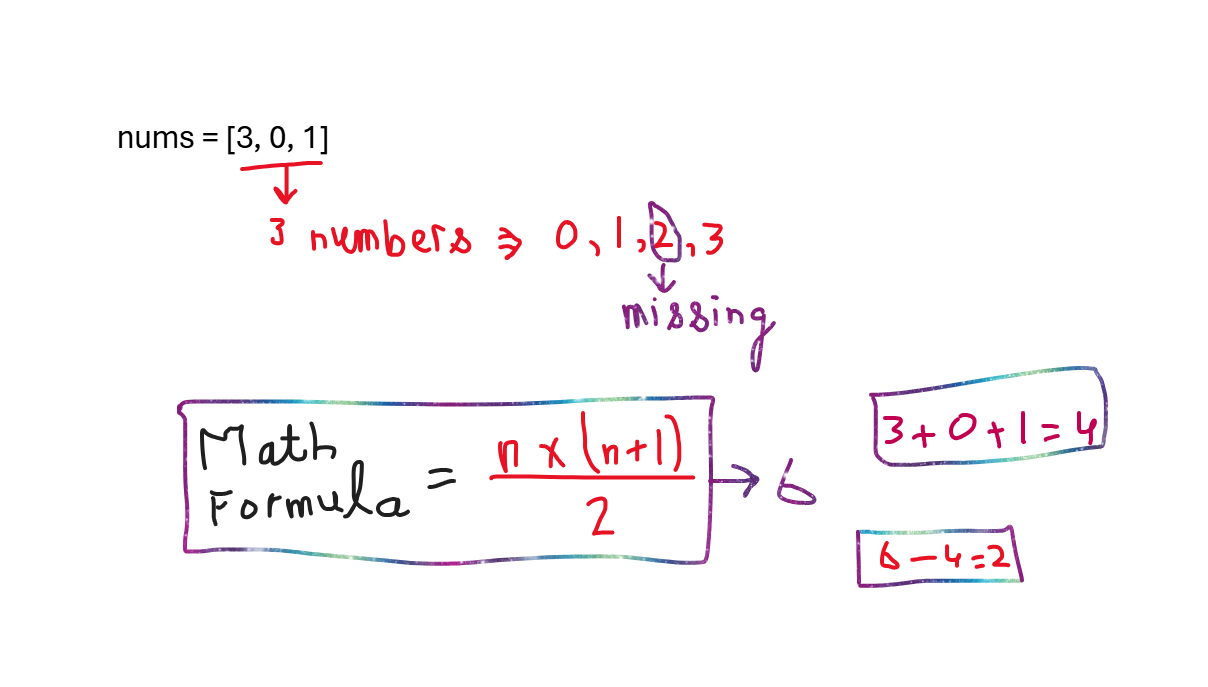 nums = [3, 0, 1]
3 numbers ⇒ 0, 1, 2, 3
missing
Math Formula = n x (n+1) / 2 → 6
3 + 0 + 1 = 4
6 - 4 = 2